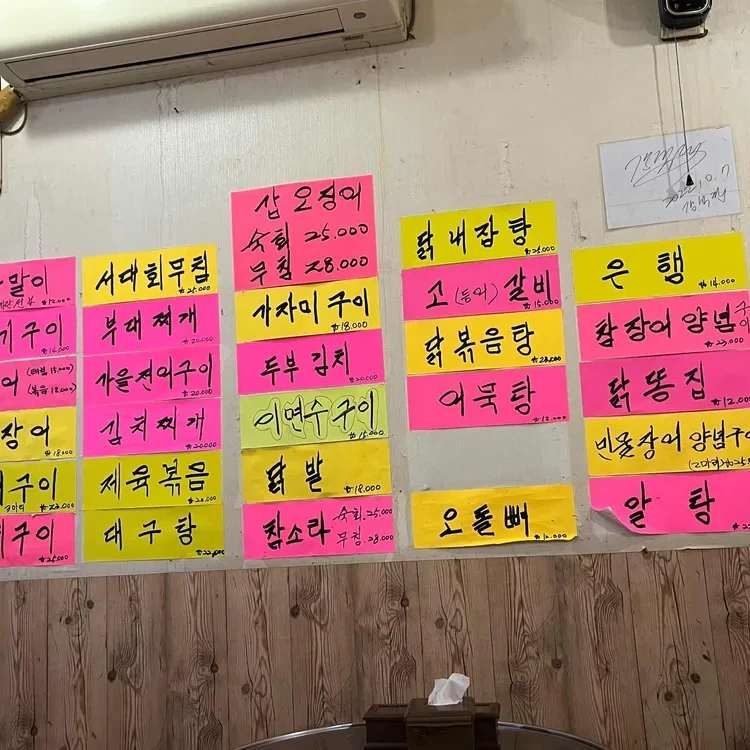 말이
₩12.000
기구이
₩16.000
어 (데침 15.000)
(볶음 18.000)
장어
₩18.000
구이
2마리 ₩23.000
구이
₩25.000
서대회무침
₩25.000
부대찌개
₩20.000
가을전어구이
₩20.000
김치찌개
₩20.000
제육볶음
₩20.000
대구탕
₩22.000
갑오징어
숙회 25.000
무침 28.000
가자미구이
₩18.000
두부김치
₩20.000
이면수구이
₩15.000
닭발
₩18.000
참소라 숙회.25.000
무침.28.000
닭내장탕
₩25.000
고(등어)갈비
₩15.000
닭볶음탕
₩28.000
어묵탕
₩18.000
오돌뼈
₩12.000
2022.10.7
은행
₩14.000
참장어양념구이
₩23.000
닭똥집
₩12.000
민물장어양념구이
(2마리)₩25.0
알탕